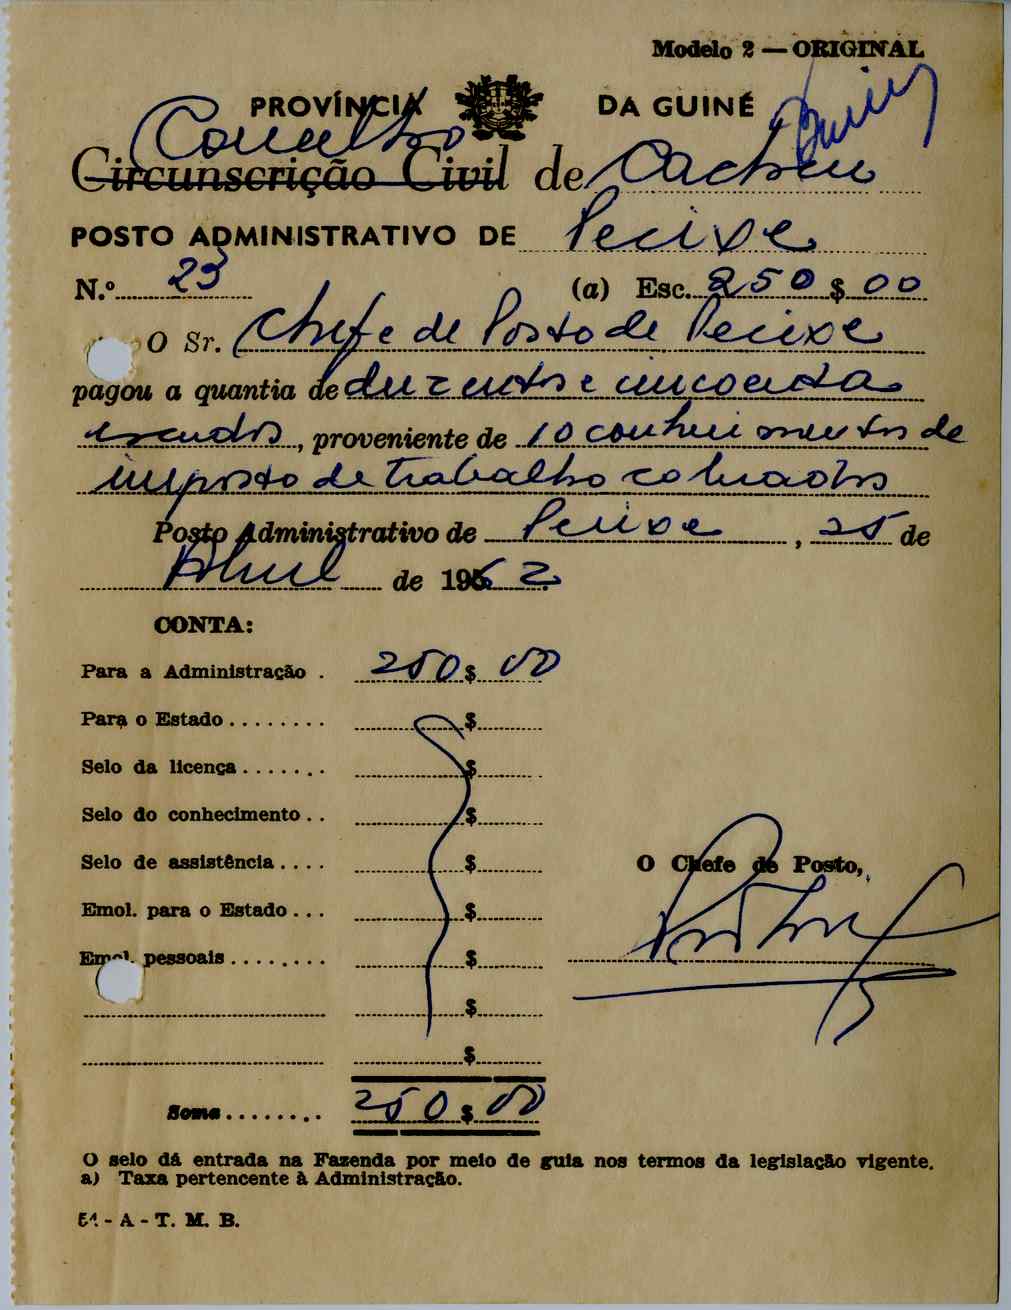 Modelo 2 — ORIGINAL
PROVÍNCIA DA GUINÉ
Concelho
Circunscrição Civil de Cacheu
POSTO ADMINISTRATIVO DE Pecixe
N.º 23 (a) Esc. 250$00
O Sr. Chefe de Posto de Pecixe
pagou a quantia de duzentos e cincoenta
escudos, proveniente de 10 conhecimentos de
imposto de trabalho cobrados
Posto Administrativo de Pecixe, 25 de
Abril de 1962
CONTA:
Para a Administração . 250$00
Para o Estado ........ $
Selo da licença ....... $
Selo do conhecimento .. $
Selo de assistência .... $
Emol. para o Estado ... $
Emol. pessoais ........ $
$
$
Soma ........ 250$00
O Chefe de Posto,
O selo dá entrada na Fazenda por meio de guia nos termos da legislação vigente.
a) Taxa pertencente à Administração.
51 - A - T. M. B.